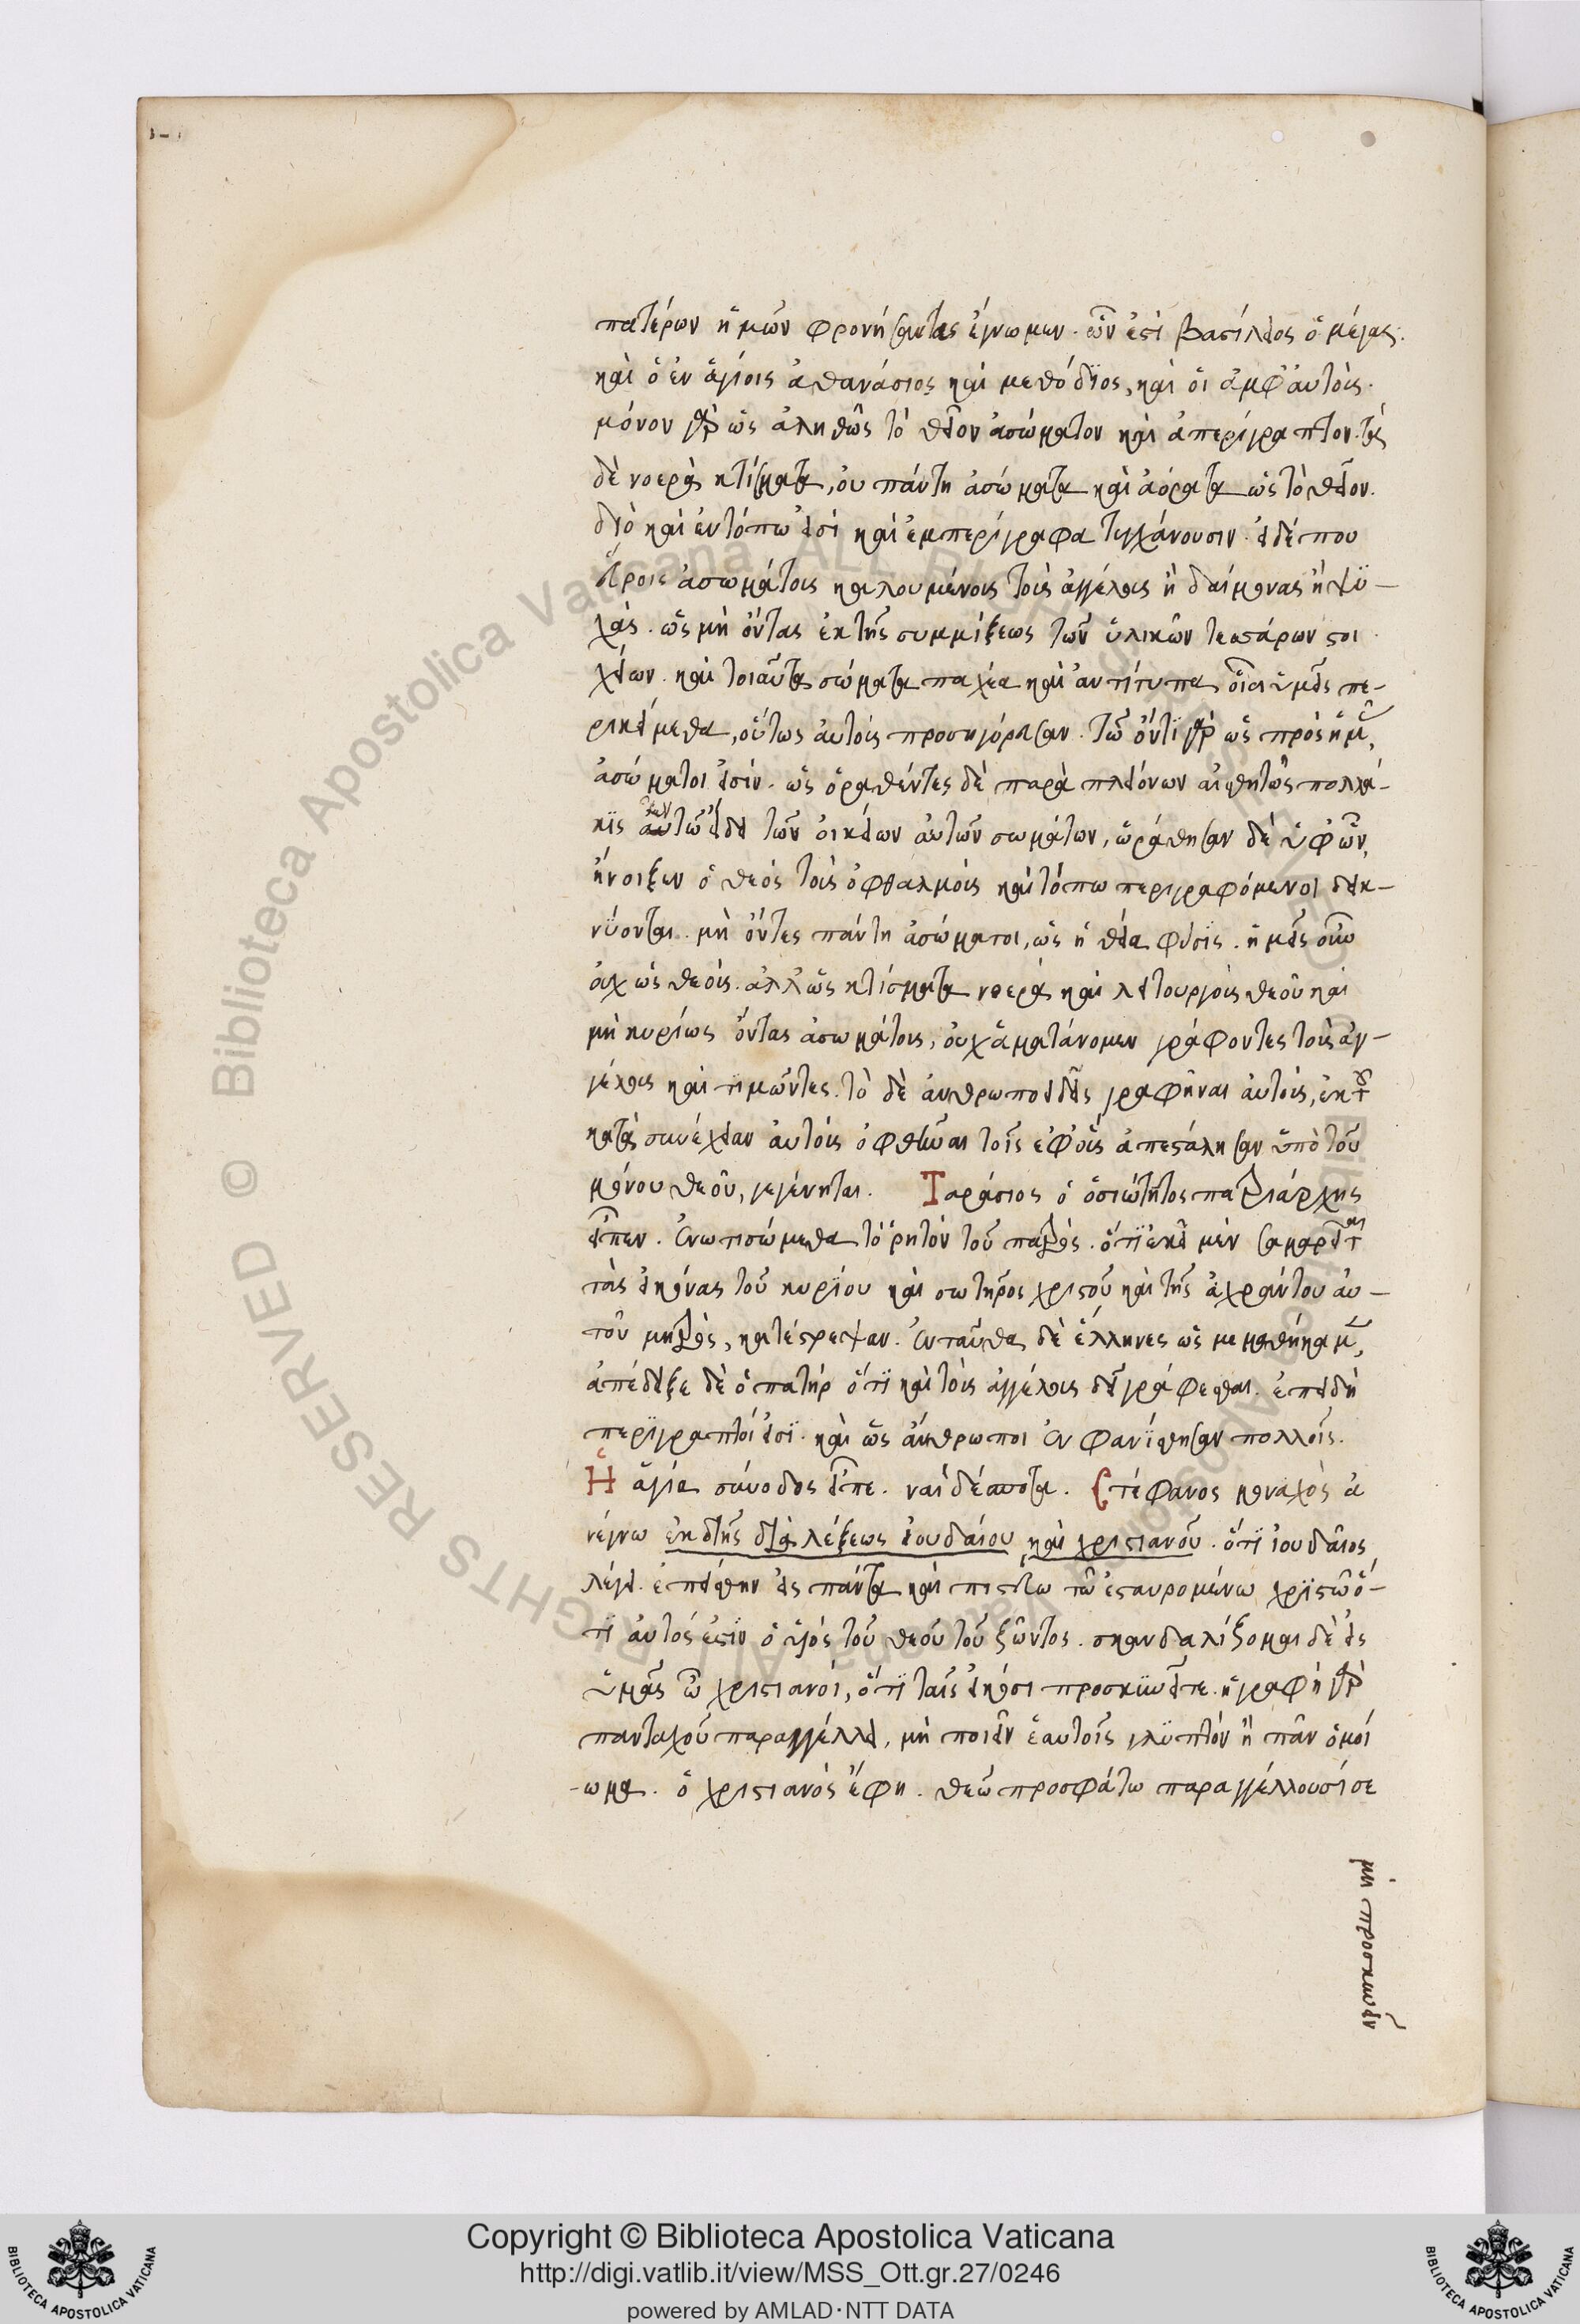 πατέρων ἡμῶν φρονήσαντας ἔγνωμεν. ὧν ἐστὶ βασίλειος ὁ μέγας.
καὶ ὁ ἐν ἁγίοις ἀθανάσιος καὶ μεθόδιος, καὶ οἱ ἀμφ' αὐτοὺς.
μόνον γὰρ ὡς ἀληθῶς τὸ θεῖον ἀσώματον καὶ ἀπερίγραπτον. τὰ
δὲ νοερὰ κτίσματα, οὐ πάντη ἀσώματα καὶ ἀόρατα ὡς τὸ θεῖον.
διὸ καὶ ἐν τόπω εἰσὶ καὶ ἐμπερίγραφα τυγχάνουσιν. εἰ δέ που
εὕροις ἀσωμάτους καλουμένους τοὺς ἀγγέλους ἢ δαίμονας ἢ ψυ-
χάς. ὡς μὴ ὄντας ἐκ τῆς συμμίξεως τῶν ὑλικῶν τεσσάρων στοι
χείων. καὶ τοιαῦτα σώματα παχέα καὶ ἀντίτυπα οἷα ὑμεῖς πε-
ρικείμεθα, οὕτως αὐτοὺς προσηγόρευσαν. τῶ ὄντι γὰρ ὡς πρὸς ἡμᾶς,
ἀσώματοι εἰσίν. ὡς ὁραθέντες δὲ παρὰ πλειόνων αἰσθητῶς πολλά-
κις τῶ εἴδει τῶν οἰκείων αὐτῶν σωμάτων, ὡράθησαν δὲ ὑφ' ὧν,
ἤνοιξεν ὁ θεὸς τοὺς ὀφθαλμοὺς καὶ τόπω περιγραφόμενοι δεικ-
νύονται. μὴ ὄντες πάντη ἀσώματοι, ὡς ἡ θεία φύσις. ἡμεῖς οὖν
οὐχ ὡς θεοὺς. ἀλλ' ὡς κτίσματα νοερὰ καὶ λειτουργοὺς θεοῦ καὶ
μὴ κυρίως ὄντας ἀσωμάτους, οὐχ ἁματάνομεν γράφοντες τοὺς ἀγ-
γέλους καὶ τιμῶντες. τὸ δὲ ἀνθρωποειδεῖς γραφῆναι αὐτοὺς, ἐκ τοῦ
κατὰ συνέχειαν αὐτοὺς ὀφθῆναι τοῖς ἐφ' οἷς ἀπεστάλησαν ὑπὸ τοῦ
μόνου θεοῦ, γεγένηται. Ταράσιος ὁ ὁσιώτατος πατριάρχης
εἶπεν. ἐνωτισώμεθα τὸ ῥητὸν τοῦ πατρὸς. ὅτι ἐκεῖ μὲν σαμαρεῖται
τὰς εἰκόνας τοῦ κυρίου καὶ σωτῆρος χριστοῦ καὶ τῆς ἀχράντου αὐ-
τοῦ μητρὸς, κατέστρεψαν. ἐνταῦθα δὲ ἕλληνες ὡς μεμαθήκαμεν,
ἀπέδειξε δὲ ὁ πατὴρ ὅτι καὶ τοὺς ἀγγέλους δεῖ γράφεσθαι. ἐπειδὴ
περιγραπτοί εἰσι. καὶ ὡς ἄνθρωποι ἐνφανίσθησαν πολλοῖς.
Ἡ ἁγία σύνοδος εἶπε. ναὶ δέσποτα. Στέφανος μοναχὸς ἀ
νέγνω ἐκ τῆς διαλέξεως ἰουδαίου καὶ χριστιανοῦ. ὅτι ἰουδαῖος
λέγει. ἐπείσθην εἰς πάντα καὶ πιστεύω τῶ ἐσταυρομένω χριστῶ ὅ-
τι αὐτός ἐστιν ὁ υἱὸς τοῦ θεοῦ τοῦ ζῶντος. σκανδαλίζομαι δὲ εἰς
ὑμᾶς ὦ χριστιανοί, ὅτι ταῖς εἰκόσι προσκυνεῖτε. ἡ γραφὴ γὰρ
πανταχοῦ παραγγέλλει, μὴ ποιεῖν ἑαυτοῖς γλυπτὸν ἢ πᾶν ὁμοί
-ωμα. ὁ χριστιανὸς ἔφη. θεῶ προσφάτω παραγγέλλουσί σε
μὴ προσκυνεῖν
Copyright © Biblioteca Apostolica Vaticana
http://digi.vatlib.it/view/MSS_Ott.gr.27/0246
powered by AMLAD·NTT DATA